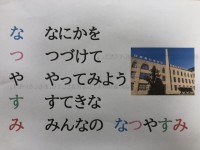 な なにかを
つ つづけて
や やってみよう
す すてきな
み みんなの なつやすみ